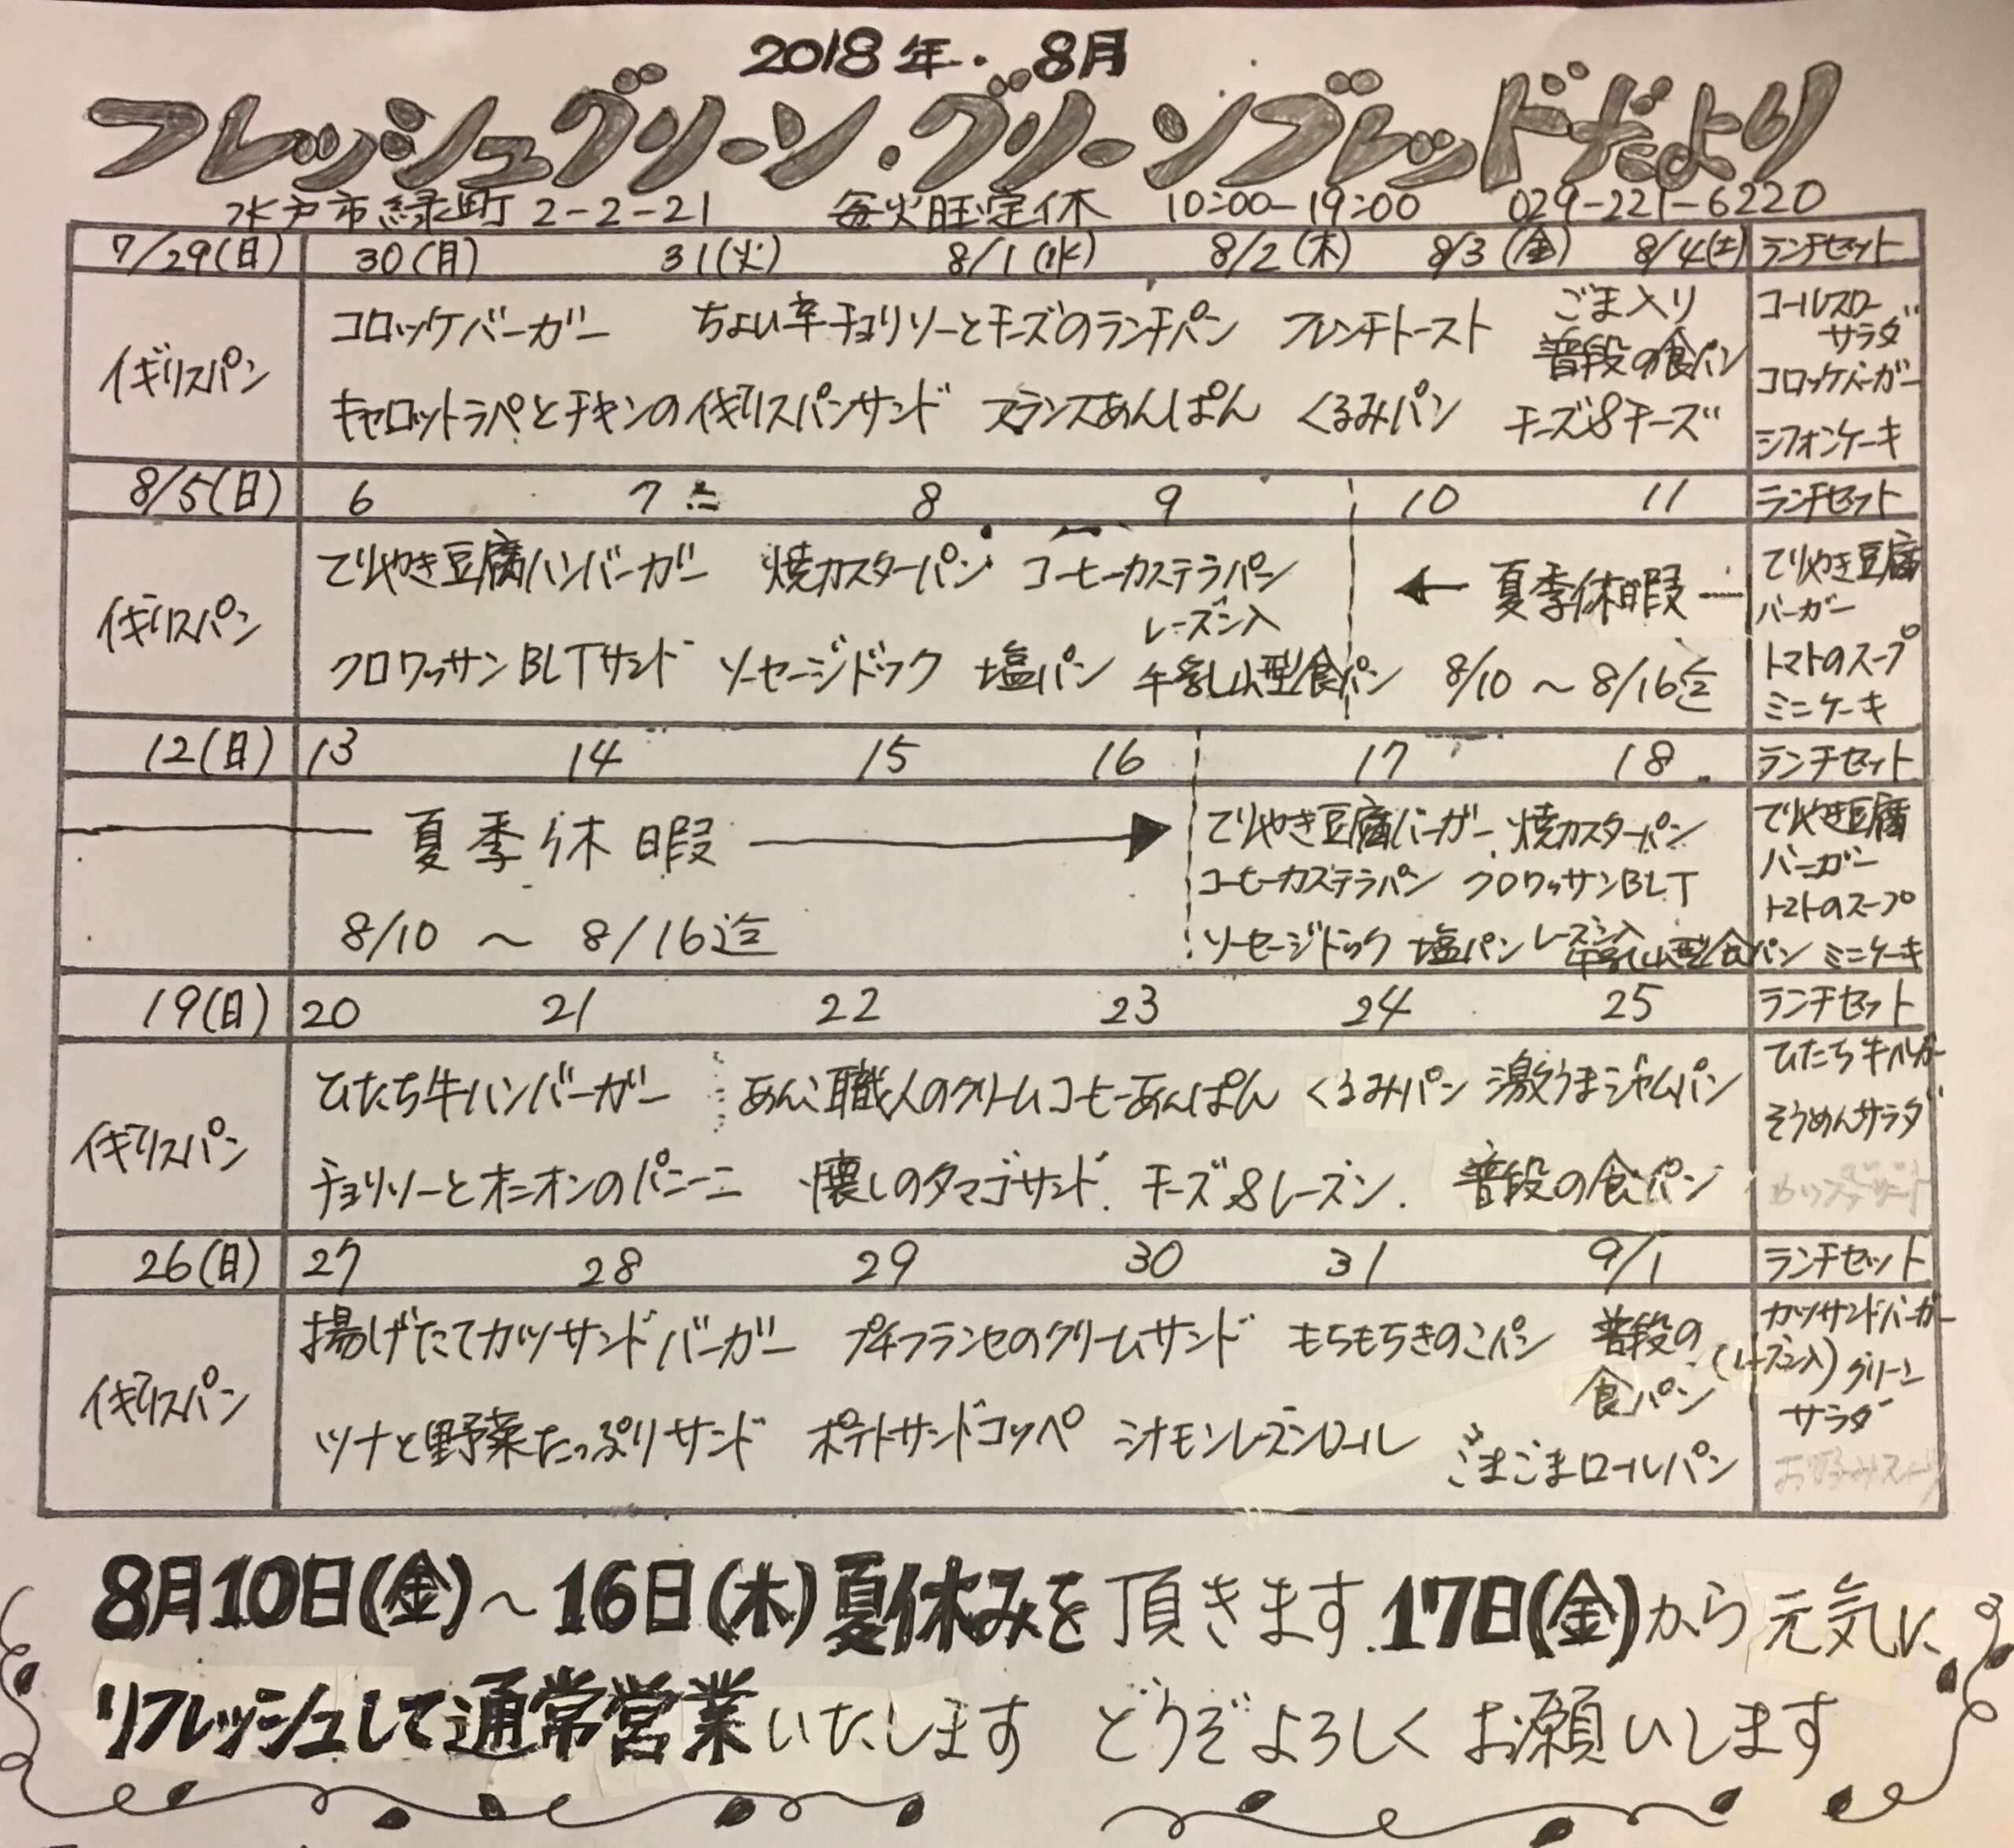 2018年.8月
フレッシュグリーン・グリーンブレッドだより
水戸市緑町2-2-21 毎火曜定休 10:00-19:00 029-221-6220
7/29(日) 30(月) 31(火) 8/1(水) 8/2(木) 8/3(金) 8/4(土) ランチセット
イギリスパン
コロッケバーガー ちょい辛チョリソーとチーズのランチパン フレンチトースト ごま入り
普段の食パン
キャロットラペとチキンのイギリスパンサンド フランスあんぱん くるみパン チーズ&チーズ
コールスロー
サラダ
コロッケバーガー
シフォンケーキ
8/5(日) 6 7 8 9 10 11 ランチセット
イギリスパン
てりやき豆腐ハンバーガー 焼カスターパン コーヒーカステラパン
レーズン入
クロワッサンBLTサンド ソーセージドック 塩パン 牛乳山型食パン
← 夏季休暇
8/10 〜 8/16迄
てりやき豆腐
バーガー
トマトのスープ
ミニケーキ
12(日) 13 14 15 16 17 18 ランチセット
夏季休暇 →
8/10 〜 8/16迄
てりやき豆腐バーガー 焼カスターパン
コーヒーカステラパン クロワッサンBLT
ソーセージドック 塩パン レーズン入 牛乳山型食パン
てりやき豆腐
バーガー
トマトのスープ
ミニケーキ
19(日) 20 21 22 23 24 25 ランチセット
イギリスパン
ひたち牛ハンバーガー あんこ職人のクリームコーヒーあんぱん くるみパン 激うまジャムパン
チョリソーとオニオンのパニーニ 懐しのタマゴサンド. チーズ&レーズン. 普段の食パン
ひたち牛バーガー
そうめんサラダ
26(日) 27 28 29 30 31 9/1 ランチセット
イギリスパン
揚げたてカツサンドバーガー プチフランセのクリームサンド もちもちきのこパン 普段の
食パン
(レーズン入)
ツナと野菜たっぷりサンド ポテトサンドコッペ シナモンレーズンロール ごまごまロールパン
カツサンドバーガー
グリーン
サラダ
8月10日(金)〜16日(木)夏休みを頂きます.17日(金)から元気に
リフレッシュして通常営業いたします どうぞよろしくお願いします